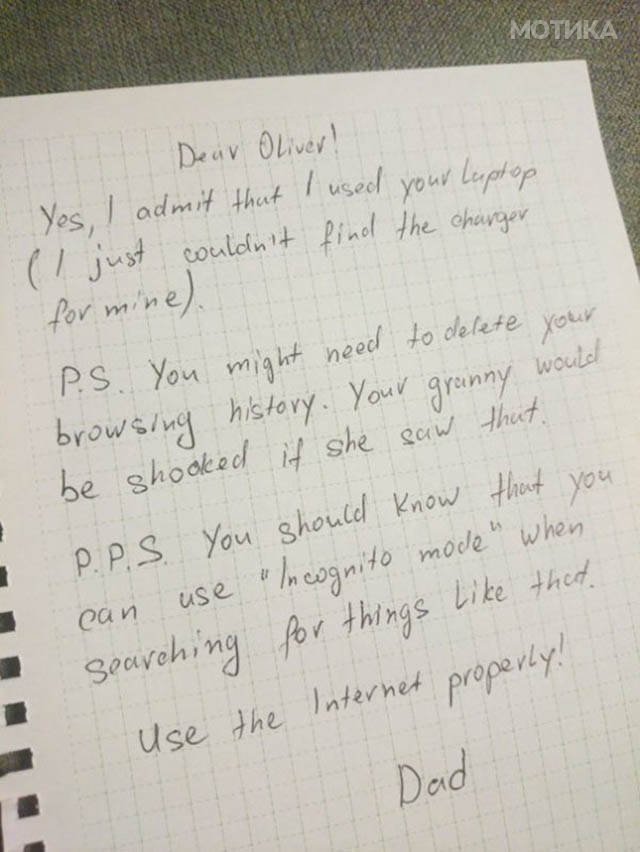 МОТИКА
Dear Oliver!
Yes, I admit that I used your laptop
(I just couldn't find the charger
for mine).
P.S. You might need to delete your
browsing history. Your granny would
be shooked if she saw that.
P.P.S. You should know that you
can use "Incognito mode" when
searching for things like that.
Use the Internet properly!
Dad